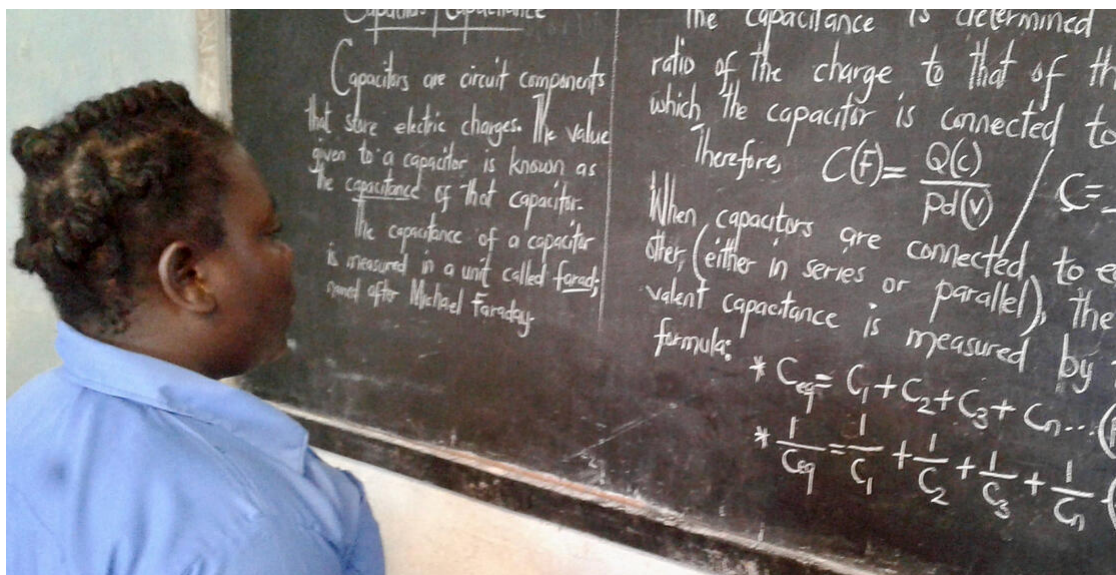 Capacitors / Capacitance
Capacitors are circuit components
that store electric charges. The value
given to a capacitor is known as
the capacitance of that capacitor.
The capacitance of a capacitor
is measured in a unit called farad;
named after Michael Faraday.
The capacitance is determined
ratio of the charge to that of
which the capacitor is connected to
Therefore, C(F) = Q(C) / Pd(V) / C=
When capacitors are connected to
other, (either in series or parallel), the
valent capacitance is measured by
formula:
* Ceq = C1 + C2 + C3 + Cn...
* 1/Ceq = 1/C1 + 1/C2 + 1/C3 + 1/Cn